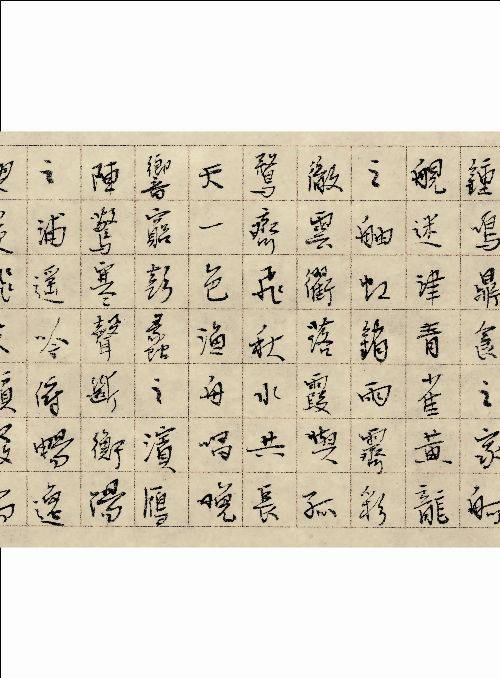 鍾鳴鼎食之家舸
艦迷津青雀黃龍
之舳虹銷雨霽彩
徹雲衢落霞與孤
鶩齊飛秋水共長
天一色漁舟唱晚
響窮彭蠡之濱鴈
陣驚寒聲斷衡陽
之浦遥吟俯暢逸